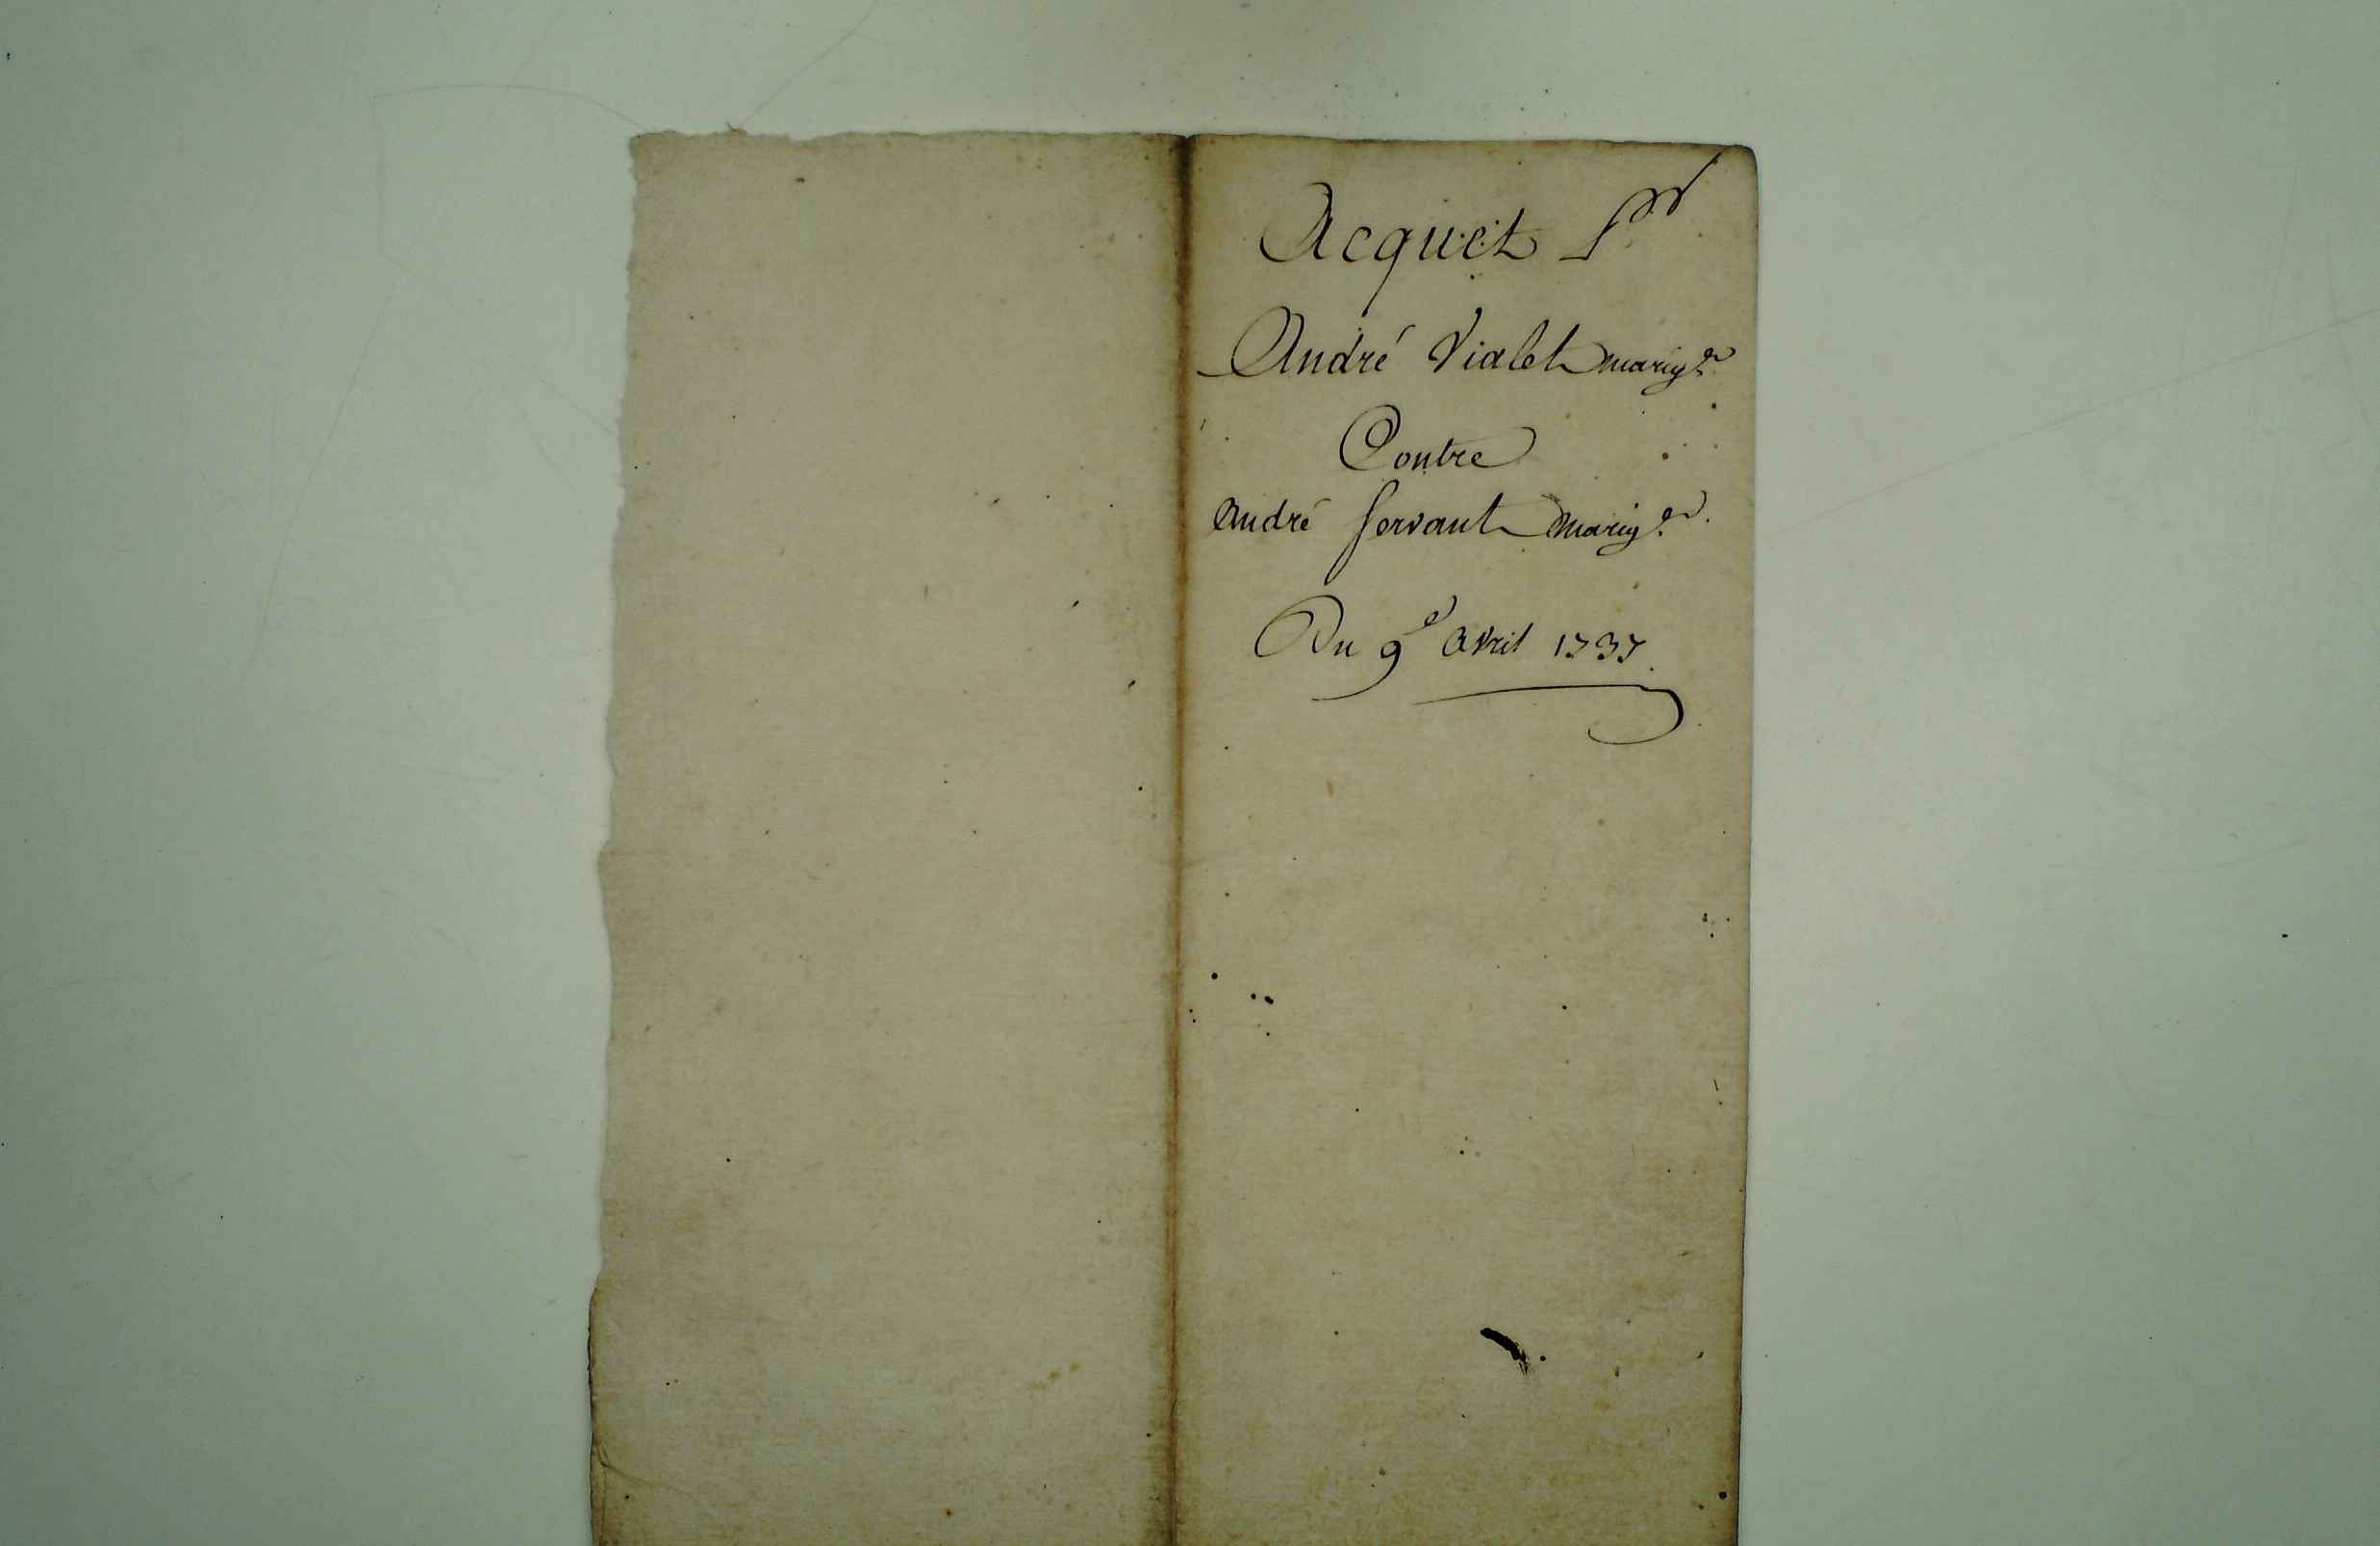 Acquet Pr
André Vialet marigr
Contre
André Servant marigr
Du 9e avril 1737